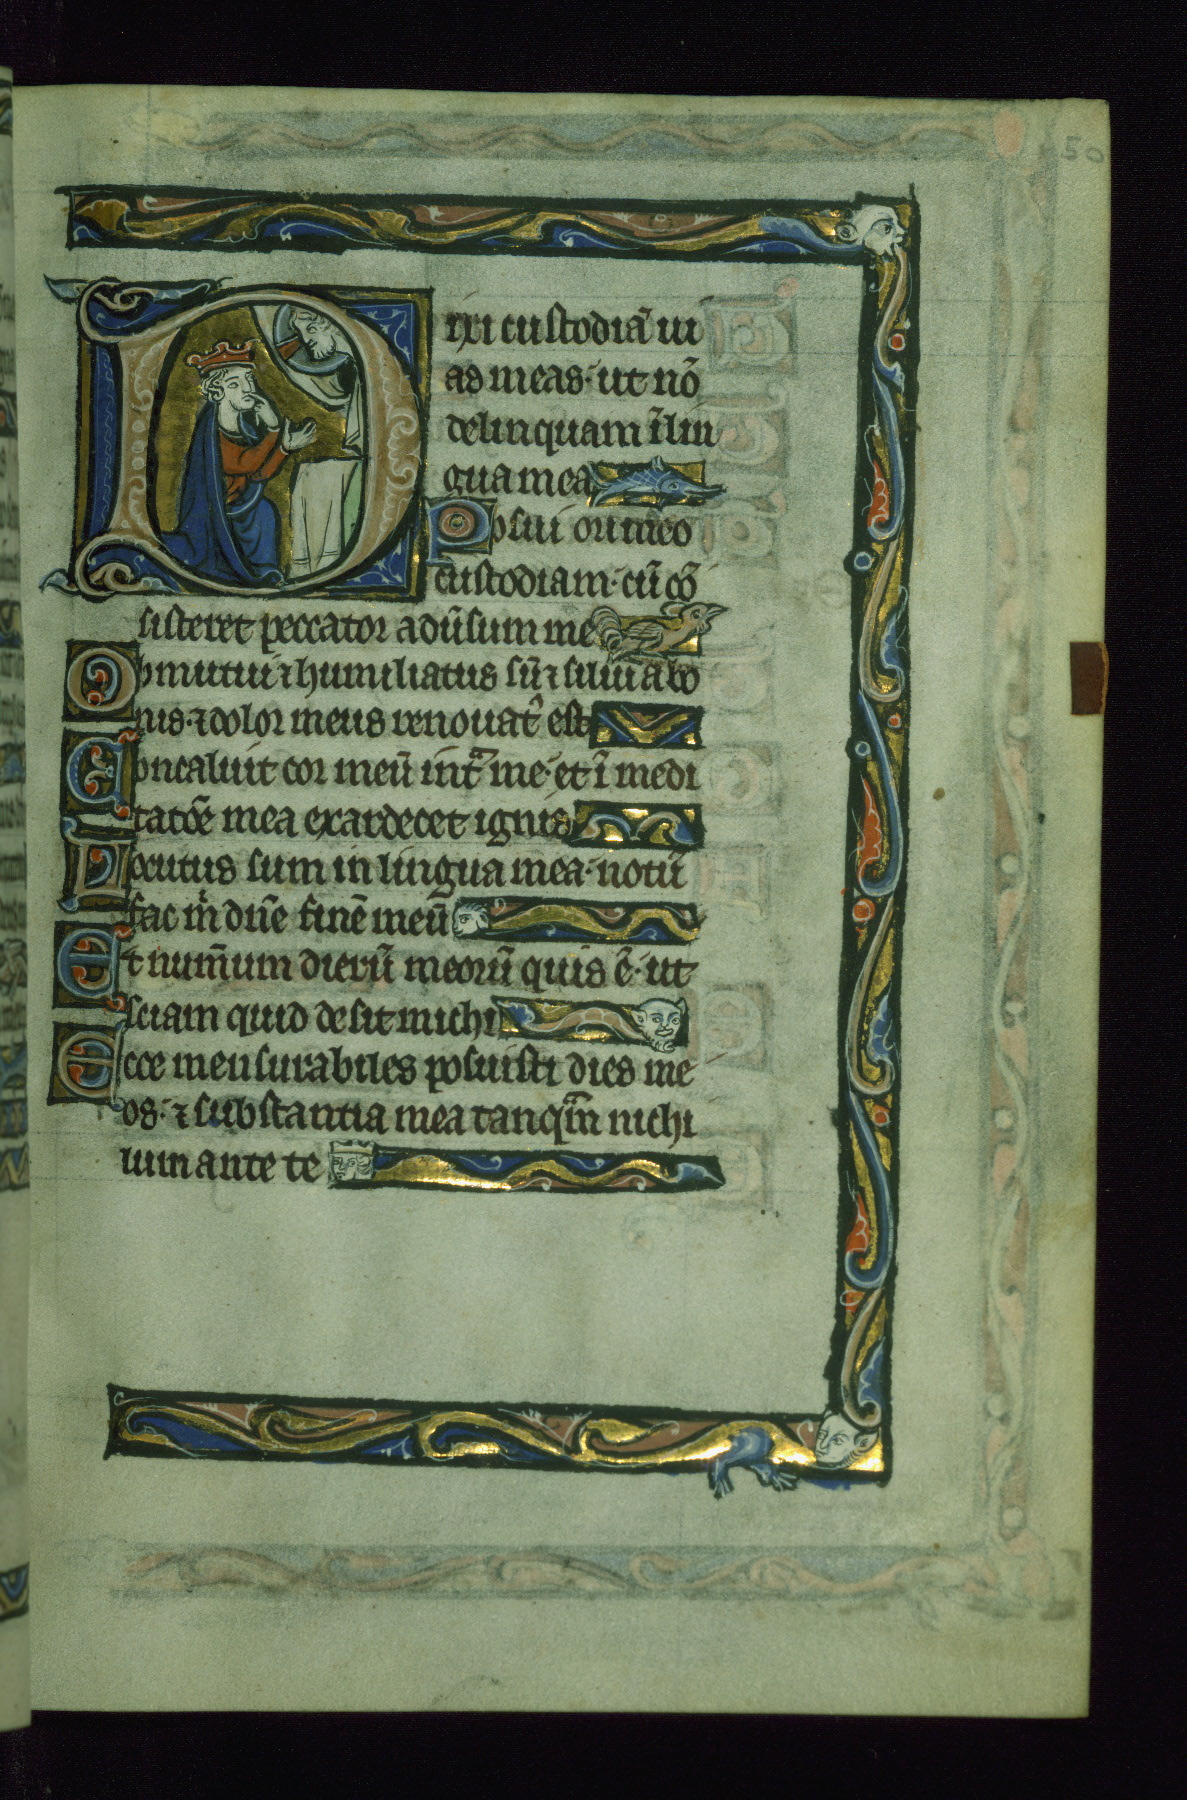 50
Dixi custodiā ui
as meas· ut nō
delinquam ī lin
gua mea
Posui ori meo
custodiam· cū cō
sisteret peccator aduersum me
Obmutui ⁊ humiliatus sū ⁊ silui a bo
nis· ⁊ dolor meus renouat᷒ est
Concaluit cor meū intᵃ me· et ī medi
tatōe mea exardecet ignis
Locutus sum in lingua mea· notū
fac mͥ dn̄e finē meū
Et num̄um dierū meorū quis ē· ut
sciam quid desit michi
Ecce mensurabiles posuisti dies me
os· ⁊ substantia mea tanqᵃm nichi
lum ante te